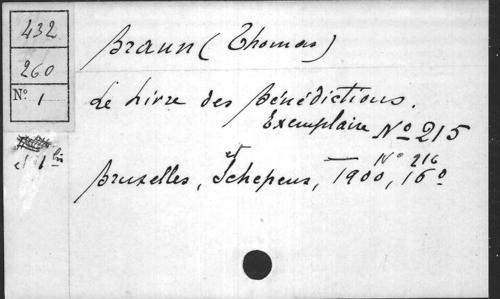 432
260
N° 1
et 1 bis
Braun (Thomas)
Le Livre des Bénédictions.
Exemplaire N° 215
et — N° 216
Bruxelles, Schepens, 1900, 16°